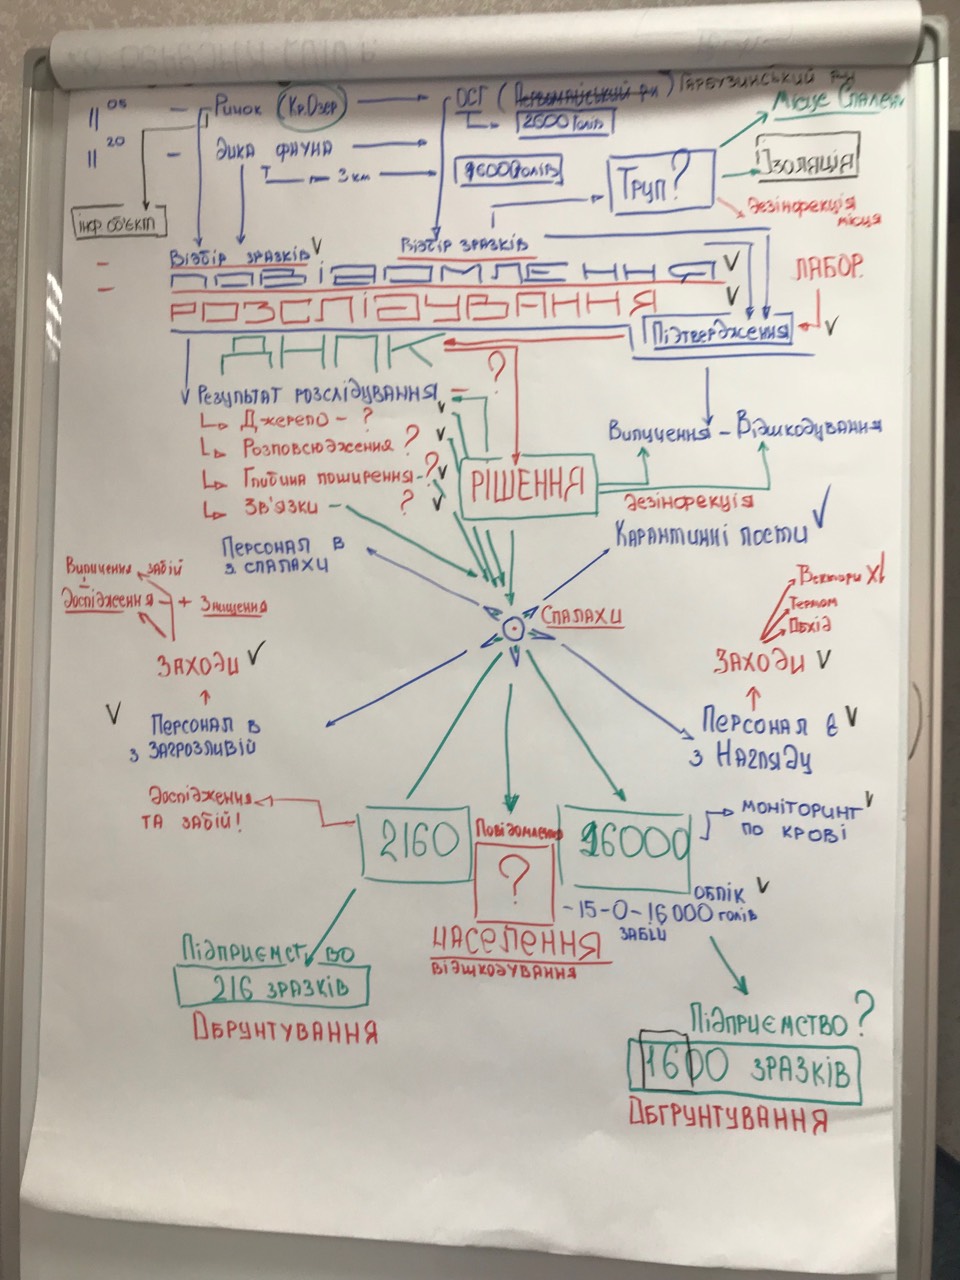 11 05 — Ринок (Кр.Озер) ОСГ (Первомайський рн) Гарбузинський рн
2600 голів
Місце Спален
11 20 — Дика фауна
3 км
16000 голів
Труп?
Ізоляція
Дезінфекція
місця
інф об'єкт
Відбір зразків
Відбір зразків
Повідомлення
Лабор.
Розслідування
Підтвердження
ДНПК
?
Результат розслідування
Джерело – ?
Розповсюдження ?
Глибина поширення – ?
Зв'язки – ?
Вилучення – Відшкодування
РІШЕННЯ
Дезінфекція
Карантинні пости
Персонал в
з спалаху
Спалахи
Вилучення забій
Дослідження + Знищення
Вектори
Термом
Обхід
Заходи
Заходи
Персонал в
з Загрозливій
Персонал в
з Нагляду
Дослідження
та забій!
2160
Повідомлення
?
16000
Моніторинг
по крові
Облік
– 15 – 0 – 16000 голів
забій
Населення
відшкодування
Підприємство
216 зразків
Обрунтування
Підприємство?
1600 зразків
Обгрунтування